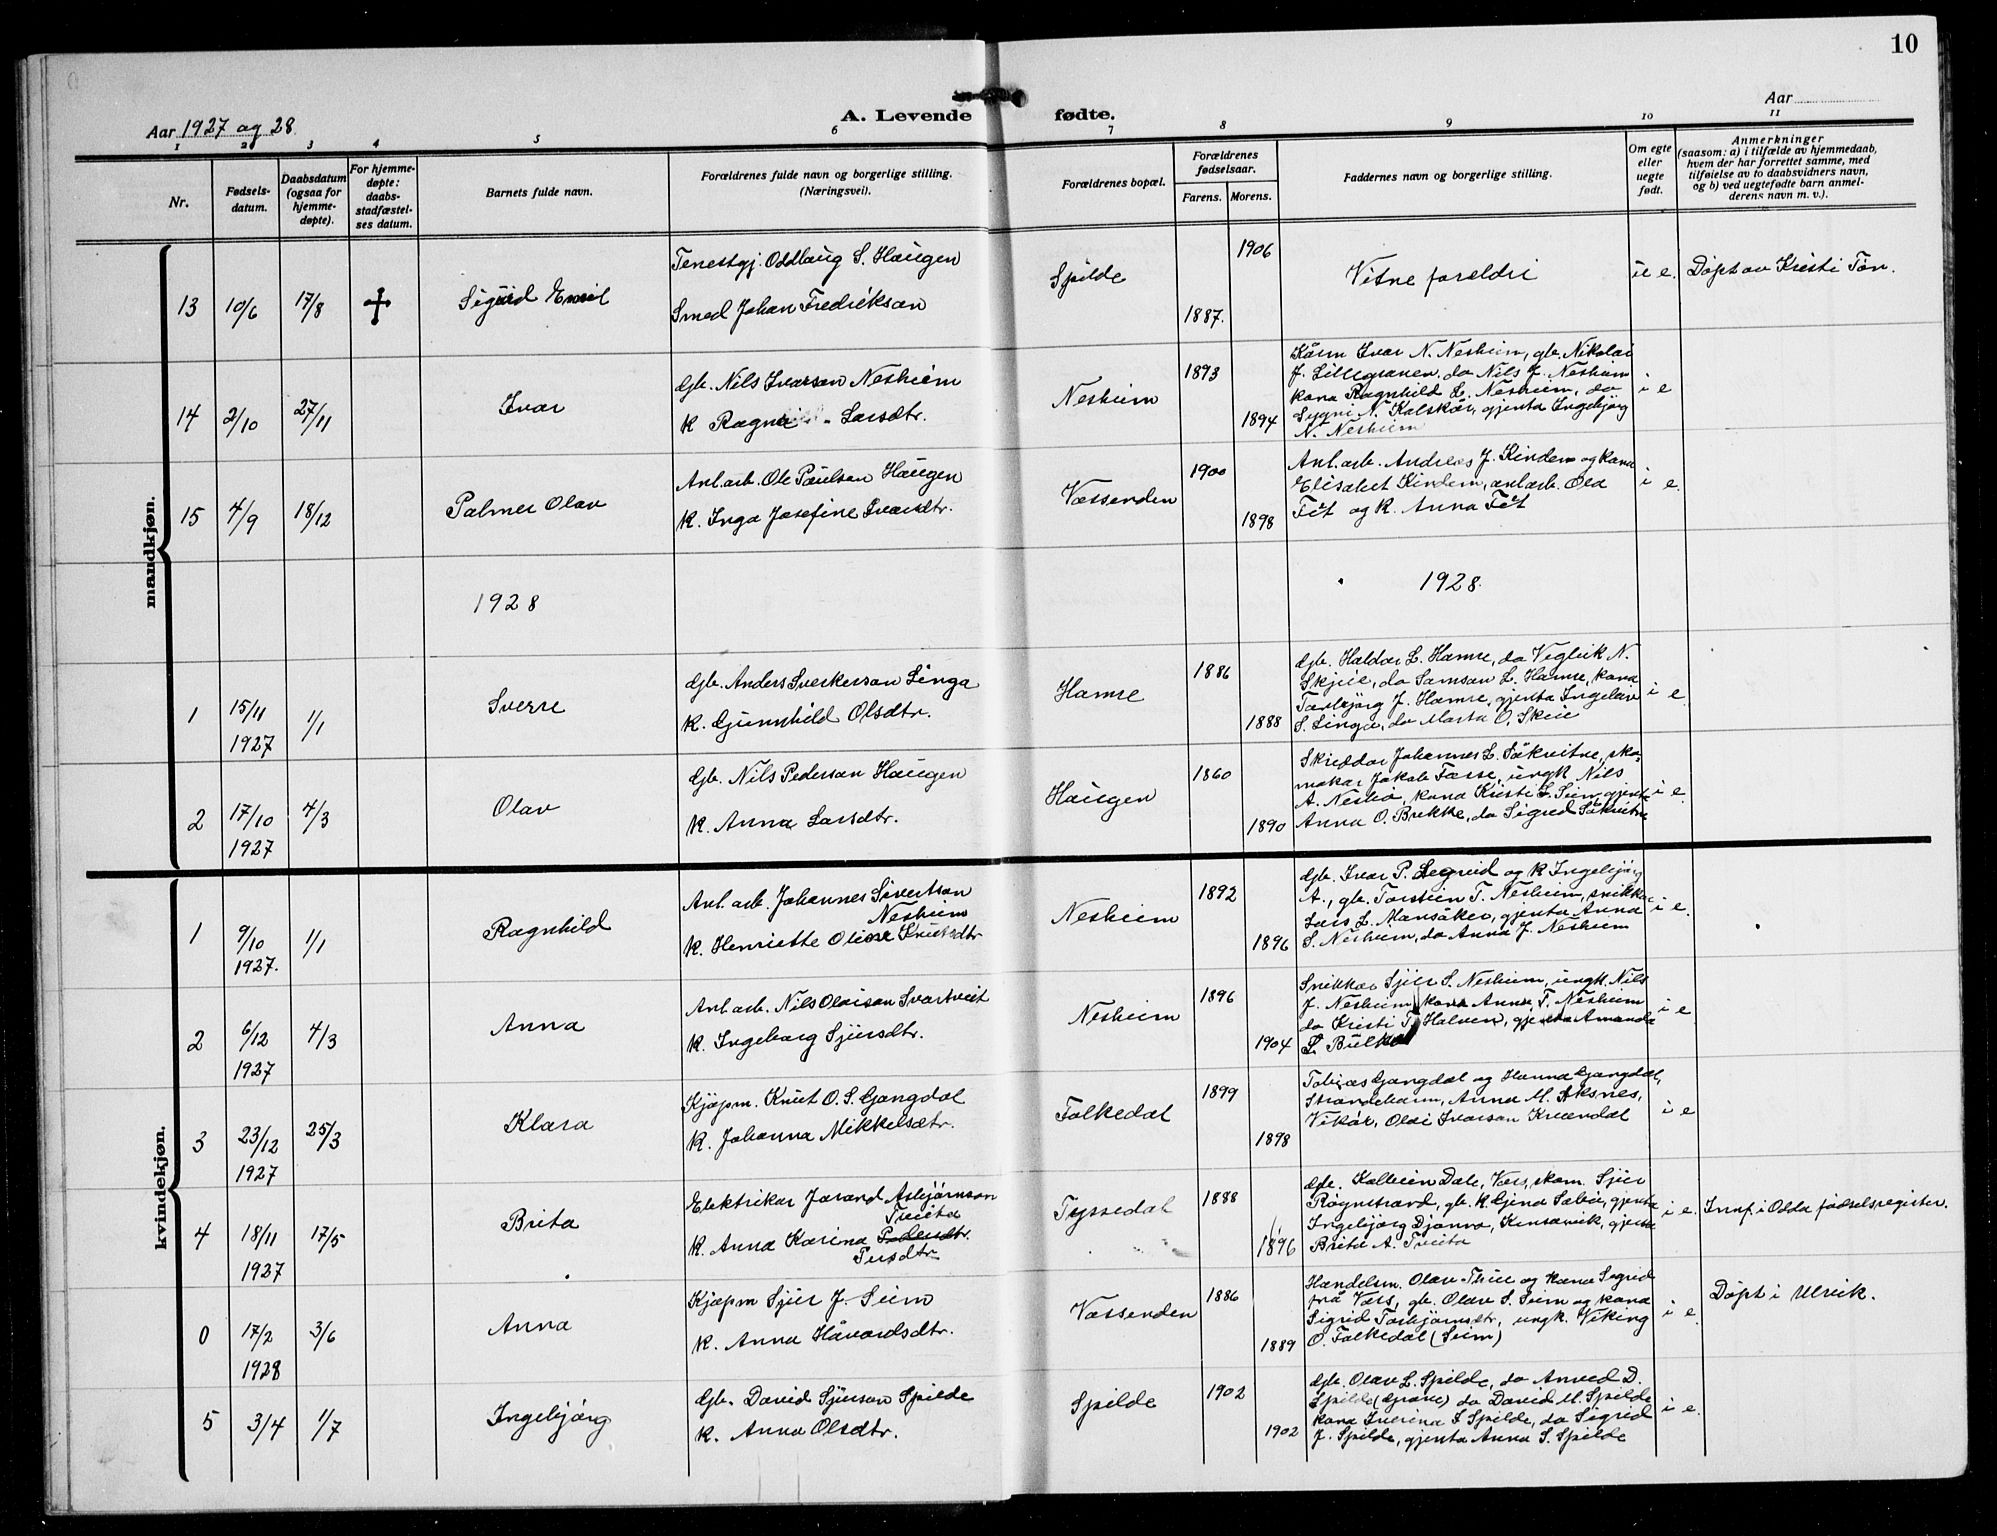 10
Aar 1927 og 28.
A. Levende fødte.
Aar
1 2 3 4 5 6 7 8 9 10 11
Nr.
Fødsels-
datum.
Daabsdatum
(ogsaa for
hjemme-
døpte).
For hjemme-
døpte:
daabs-
stadfæstel-
ses datum.
Barnets fulde navn.
Forældrenes fulde navn og borgerlige stilling.
(Næringsvei).
Forældrenes bopæl.
Forældrenes
fødselsaar.
Farens. Morens.
Faddernes navn og borgerlige stilling.
Om egte
eller
uegte
født.
Anmerkninger
(saasom: a) i tilfælde av hjemmedaab,
hvem der har forrettet samme, med
tilføielse av to daabsvidners navn,
og b) ved uegtefødte barn anmel-
derens navn m. v.).
mandkjøn.
13 10/6 17/8 Sigurd Emil
Tenestgj. Oddlaug S. Haugen
Smed Johan Fredriksen
Spilde
1906
1887.
Vitne foreldri
u e.
Døpt av Kristi Tøn.
14 2/10 27/11 Ivar
Gb. Nils Ivarson Nesheim
K Ragnhild Larsdtr.
Nesheim
1893
1894
Kårm Ivar N. Nesheim, gb. Nikolai
J. Lillegraven, do Nils J. Nesheim
kona Ragnhild L. Nesheim, do
Sygni N. Kalskår, gjenta Ingebjørg
N. Nesheim
i e
15 4/9 18/12 Palmer Olav
Anl. arb. Ole Paulson Haugen
K. Inga Josefine Ivarsdtr.
Vassenden
1900
1898
Anl. arb. Andreas J. Kindem og kona
Elisabet Kindem, anl.arb. Ola
Fèt og K. Anna Fèt
i e.
1928
1928.
1 15/11 1927 1/1 Sverre
Gb. Anders Sverkerson Linga
K. Gunnhild Olsdtr.
Hamre
1886
1888
Gb. Haldor L. Hamre, do Vigleik N.
Skjeie, do Samson L. Hamre, kona
Torbjørg J. Hamre, gjenta Ingeleiv
S. Linga, do Marta O. Skeie
i e
2 17/10 1927 4/3 Olav
Gb. Nils Pederson Haugen
K. Anna Larsdtr.
Haugen
1860
1890
Skreddar Johannes L. Såkvitne, sko-
makar Jakob Færse, ungk Nils
A. Nesbø, kona Kristi L. Seim, gjenta
Anna O. Brekke, do Sigrid Såkvitne
i e.
kvindekjøn.
1 9/10 1927. 1/1 Ragnhild
Anl. arb. Johannes Sivertson
Nesheim
K. Henriette Oline Knutsdtr
Nesheim
1892
1896
Gb. Ivar P. Legreid og K Ingebjørg
A., gb. Torstein T. Nesheim, snikkar
Lars L. Mansåker, gjenta Anna
S. Nesheim, do Anna J. Nesheim
i e.
2 6/12 1927 4/3 Anna
Anl arb. Nils Olaison Svartveit
K. Ingeborg Sjursdtr.
Nesheim
1896
1904
Snikkar Sjur S. Nesheim, ungk. Nils
J. Nesheim, kona Anna T. Nesheim
do Kristi T. Halven, gjenta Amanda
L. Bulko
i e
3 23/12 1927 25/3 Klara
Kjøpm. Knut O. S. Gangdal
K. Johanna Mikkelsdtr.
Folkedal
1899
1898
Tobias Gangdal og Hanna Gangdal,
Strandebarm, Anna M. Aksnes,
Vikør, Olai Ivarson Kvændal
i e
4 18/11 1927 17/5 Brita
Elektrikar Jørand Asbjørnson
Tveita
K. Anna Karina Pedersdtr.
Persdtr
Tyssedal
1888
1896
Gb. Kolbein Dale, Vøss, skom. Sjur
Røynstrand, gb. K. Gjena Sæbie, gjenta
Ingebjørg Djønne, Kinsarvik, gjenta
Brita A. Tveita
i e.
Innf. i Odda fødselsregister.
0 17/2 1928 3/6 Anna
Kjøpm Sjur J. Seim
K. Anna Håvardsdtr.
Vassenden
1886
1889
Handelsm. Olav Thue og kona Sigrid
frå Voss, gb. Olav S. Seim og kona
Sigrid Torbjørnsdtr, ungk. Viking
O. Folkedal (Seim)
i e
Døpt i Ulvik.
5 3/4 1/7 Ingebjørg
Gb. David Sjurson Spilde
K. Anna Olsdtr.
Spilde
1902
1902
Gb. Olav L. Spilde, do Anved D.
Spilde (Grove) do David M. Spilde
kona Iverina S Spilde, do Sigrid
J. Spilde, gjenta Anna S. Spilde
i e.